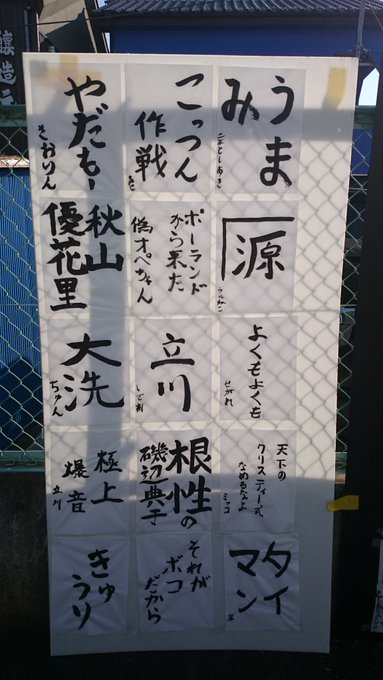 うま
み
源
よくもよくも
せがれ
天下の
クリスティー式
なめるなよ
ミッコ
タイ
マン
こっつん
作戦
ポーランド
から来た
偽オペちゃん
立川
根性の
磯辺典子
それが
ボコ
だから
やだもー
さおりん
秋山
優花里
大洗
ちゃん
極上
爆音
立川
きゅ
うり